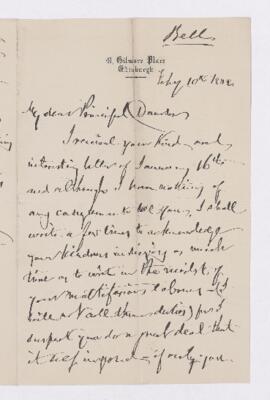 Bell
Gilmore Place
Edinburgh
Feby 10th
My dear Principal Dawson
I received your kind and
interesting letter of January 16th
and although I have nothing of
any consequence to tell you, I shall
write a few lines to acknowledge
your kindness in giving so much
time as to write in the midst of
your multifarious labours (I
will not call them duties) for I
suspect you do a great deal that
is self imposed - if only you